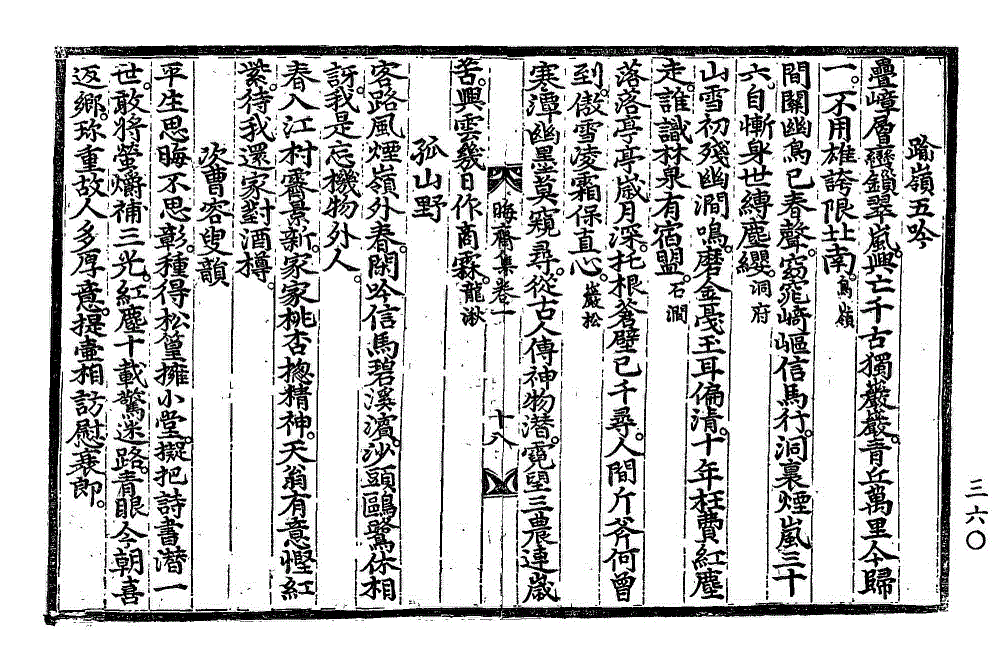 踰嶺五吟
疊嶂層巒鎖翠嵐興亡千古獨巖巖靑丘萬里今歸
一不用雄誇限北南鳥嶺
間關幽鳥已春聲窈窕崎嶇信馬行洞裏煙嵐三十
六自慚身世縛塵纓洞府
山雪初殘幽澗鳴磨金戞玉耳偏淸十年枉費紅塵
走誰識林泉有宿盟石澗
落落亭亭歲月深托根蒼壁已千尋人間斤斧何曾
到傲雪凌霜保直心巖松
寒潭幽墨莫窺尋從古人傳神物潛霓望三農連歲
苦興雲幾日作商霖龍湫
晦齋集卷一
十八
孤山野
客路風煙嶺外春閑吟信馬碧溪濱沙頭鷗鷺休相
訝我是忘機物外人
春入江村霽景新家家桃杏摠精神天翁有意慳紅
紫待我還家對酒樽
次曹容叟韻
平生思晦不思彰種得松篁擁小堂擬把詩書潛一
世敢將螢爝補三光紅塵十載驚迷路靑眼今朝喜
返鄕珎重故人多厚意提壺相訪慰衰郞
三六〇